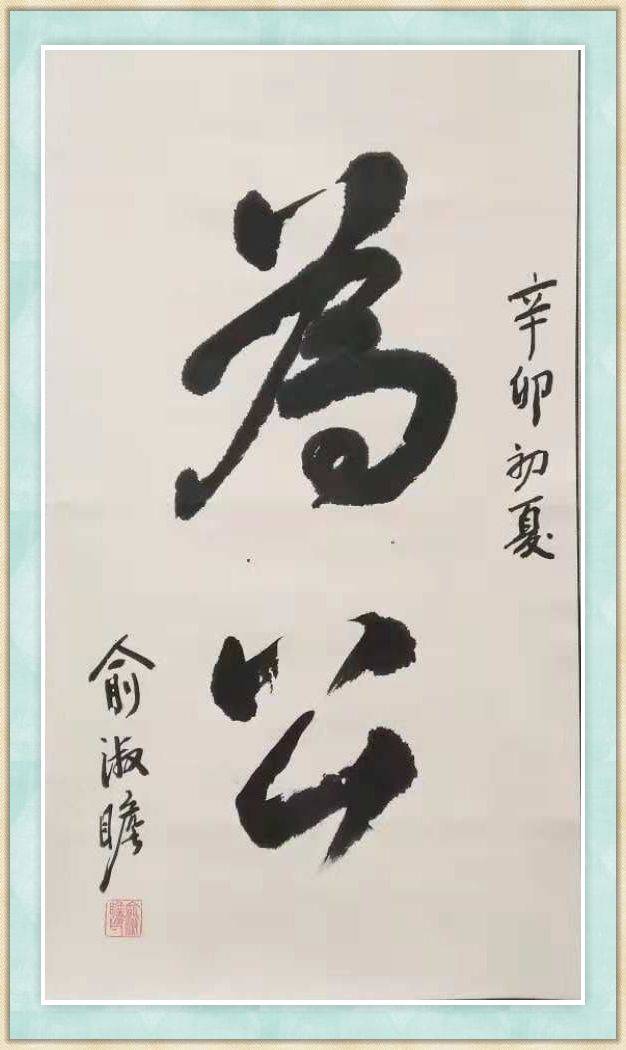 為公
辛卯初夏
俞淑瞻